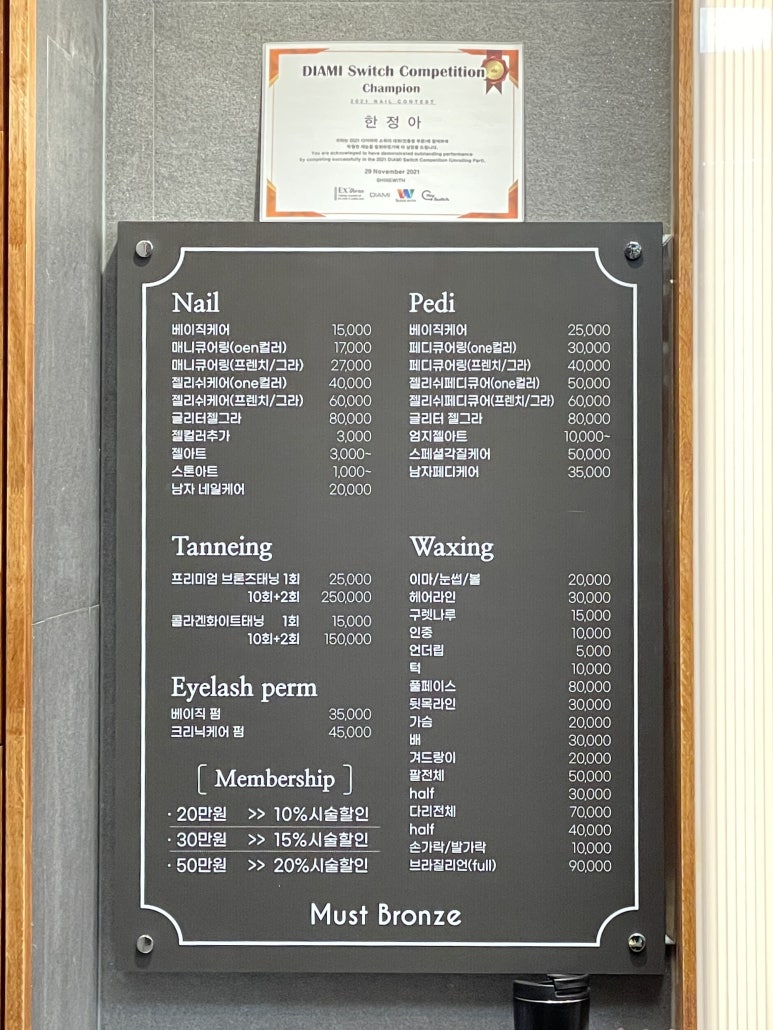 DIAMI Switch Competition
Champion
2021 NAIL CONTEST
한 정 아
You are acknowledged to have demonstrated outstanding performance
by completing successfully in the 2021 DIAMI Switch Competition (Unrolling Part).
29 November 2021
SHINEWITH
DIAMI
Nail
베이직케어 15,000
매니큐어링(oen컬러) 17,000
매니큐어링(프렌치/그라) 27,000
젤리쉬케어(one컬러) 40,000
젤리쉬케어(프렌치/그라) 60,000
글리터젤그라 80,000
젤컬러추가 3,000
젤아트 3,000~
스톤아트 1,000~
남자 네일케어 20,000
Pedi
베이직케어 25,000
페디큐어링(one컬러) 30,000
페디큐어링(프렌치/그라) 40,000
젤리쉬페디큐어(one컬러) 50,000
젤리쉬페디큐어(프렌치/그라) 60,000
글리터 젤그라 80,000
엄지젤아트 10,000~
스페셜각질케어 50,000
남자페디케어 35,000
Tanneing
프리미엄 브론즈태닝 1회 25,000
10회+2회 250,000
콜라겐화이트태닝 1회 15,000
10회+2회 150,000
Eyelash perm
베이직 펌 35,000
크리닉케어 펌 45,000
[ Membership ]
· 20만원 >> 10%시술할인
· 30만원 >> 15%시술할인
· 50만원 >> 20%시술할인
Waxing
이마/눈썹/볼 20,000
헤어라인 30,000
구렛나루 15,000
인중 10,000
언더립 5,000
턱 10,000
풀페이스 80,000
뒷목라인 30,000
가슴 20,000
배 30,000
겨드랑이 20,000
팔전체 50,000
half 30,000
다리전체 70,000
half 40,000
손가락/발가락 10,000
브라질리언(full) 90,000
Must Bronze